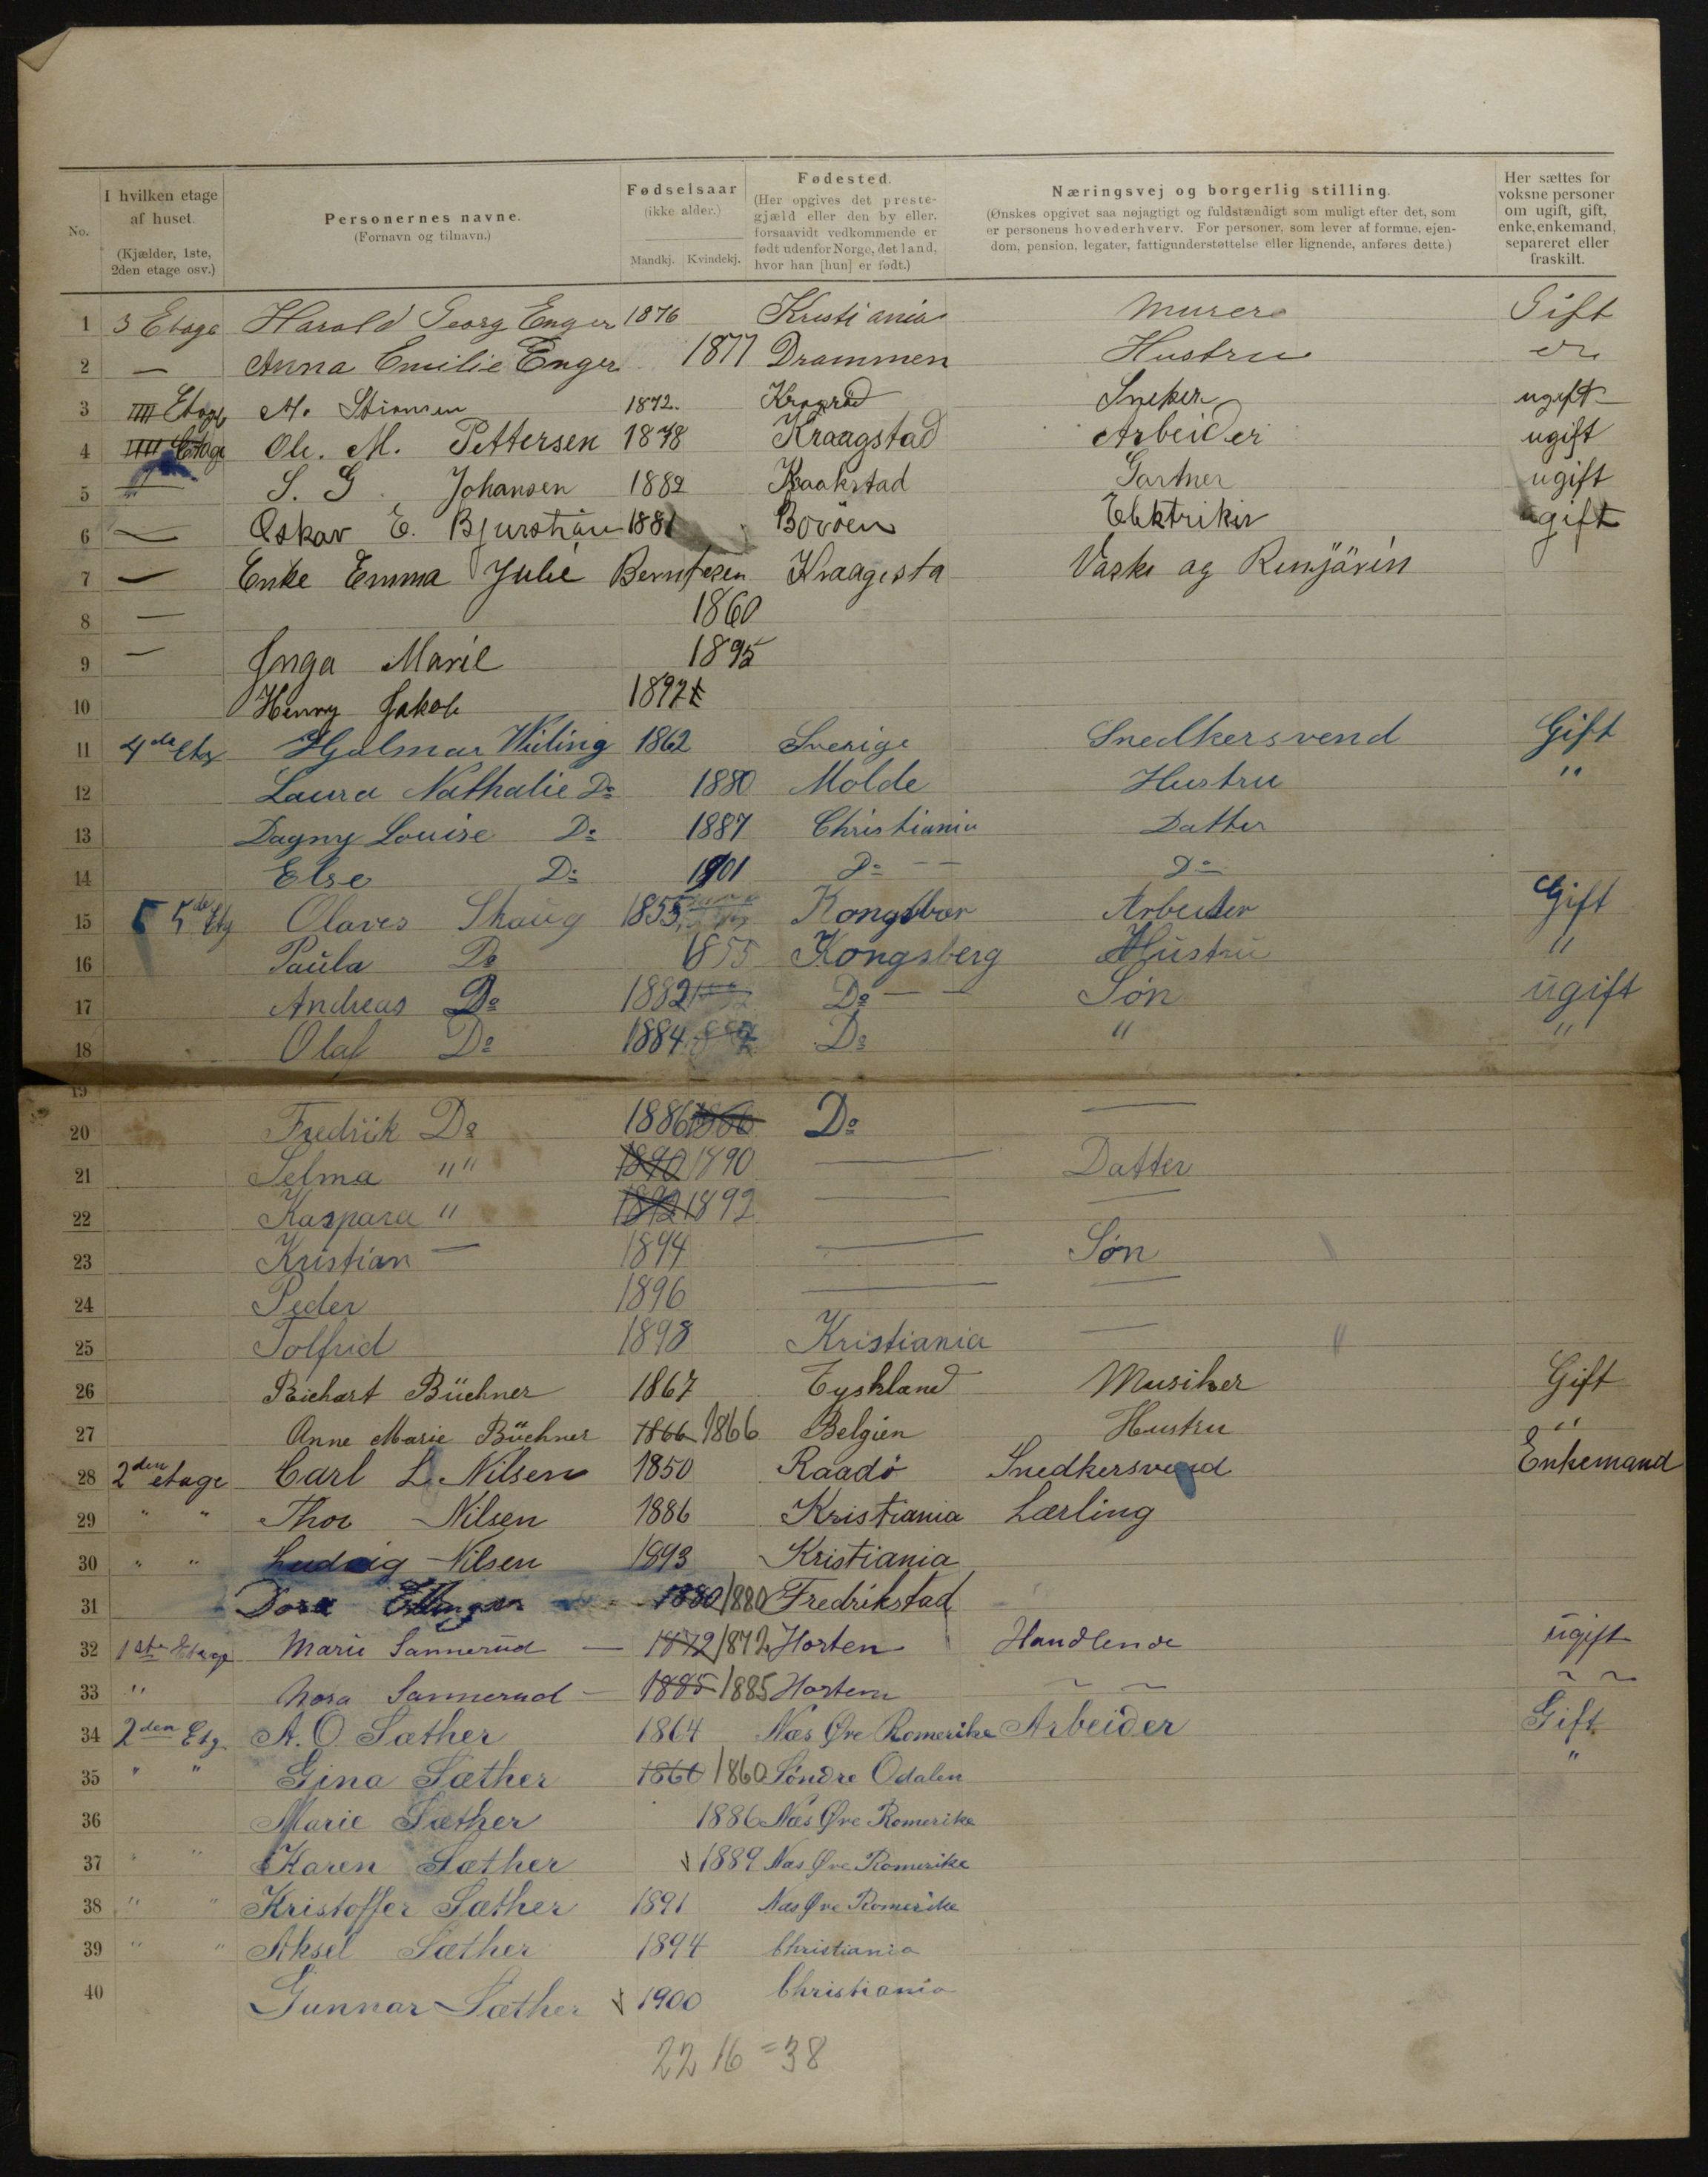 No.
I hvilken etage af huset. (Kjælder, 1ste, 2den etage osv.)
Personernes navne. (Fornavn og tilnavn.)
Fødselsaar (ikke alder.) Mandkj. Kvindekj.
Fødested. (Her opgives det prestegjæld eller den by eller, forsaavidt vedkommende er født udenfor Norge, det land, hvor han [hun] er født.)
Næringsvej og borgerlig stilling. (Ønskes opgivet saa nøjagtigt og fuldstændigt som muligt efter det, som er personens hovederhverv. For personer, som lever af formue, ejendom, pension, legater, fattigunderstøttelse eller lignende, anføres dette.)
Her sættes for voksne personer om ugift, gift, enke, enkemand, separeret eller fraskilt.
1 3 Etage Harald Georg Enger 1876 Kristiania Murer Gift
2 — Anna Emilie Enger 1877 Drammen Hustru
3 IIII Etage M. 1872. Sneker ugift
4 IIII Etage Ole. M. Pettersen 1878 Kraagstad Arbeider ugift
5 S. G. Johansen 1882 Kraakstad Gartner ugift
6 — Oskar E. 1881 Elektriker ugift
7 — Enke Emma Julie Berntesen Kraagesta Vaske og
8 — 1860
9 — Inga Marie 1895
10 Henry Jakob 1897
11 4de Etg Hjalmar 1862 Sverige Snedkersvend Gift
12 Laura Nathalie Do 1880 Molde Hustru "
13 Dagny Louise Do 1887 Christiania Datter
14 Else Do 1901 Do — — Do
15 5 5de Etg Olaves Skaug 1855 Kongsber Arbeider Gift
16 Paula Do 1855 Kongsberg Hustru "
17 Andreas Do 1882 Do — — Søn ugift
18 Olaf Do 1884 Do " "
19
20 Fredrik Do 1886 1886 Do —
21 Selma "" 1890 1890 — Datter
22 Kaspara " 1892 1892 — —
23 Kristian — 1894 — Søn
24 Peder 1896 — —
25 Tolfrid 1898 Kristiania —
26 Richart Büchner 1867 Tyskland Musiker Gift
27 Anne Marie Büchner 1866 1866 Belgien Hustru "
28 2den etage Carl L. Nilsen 1850 Raadö Snedkersvend Enkemand
29 " " Thor Nilsen 1886 Kristiania Lærling
30 " " Ludvig Nilsen 1893 Kristiania
31 Dora 1880 1880 Fredrikstad
32 1ste Etage Marie Sannerud — 1872 1872 Horten Handlende ugift
33 " Nora Sannerud — 1885 1885 Horten ~ ~ ~ ~
34 2den Etg. A. O. Sæther 1864 Næs Øvre Romerike Arbeider Gift
35 " " Gina Sæther 1860 1860 Söndre Odalen "
36 Marie Sæther 1886 Næs Øvre Romerike
37 " " Karen Sæther 1889 Næs Øvre Romerike
38 " " Kristoffer Sæther 1891 Næs Øvre Romerike
39 " " Aksel Sæther 1894 Christiania
40 Gunnar Sæther 1900 Christiania
22 16 = 38